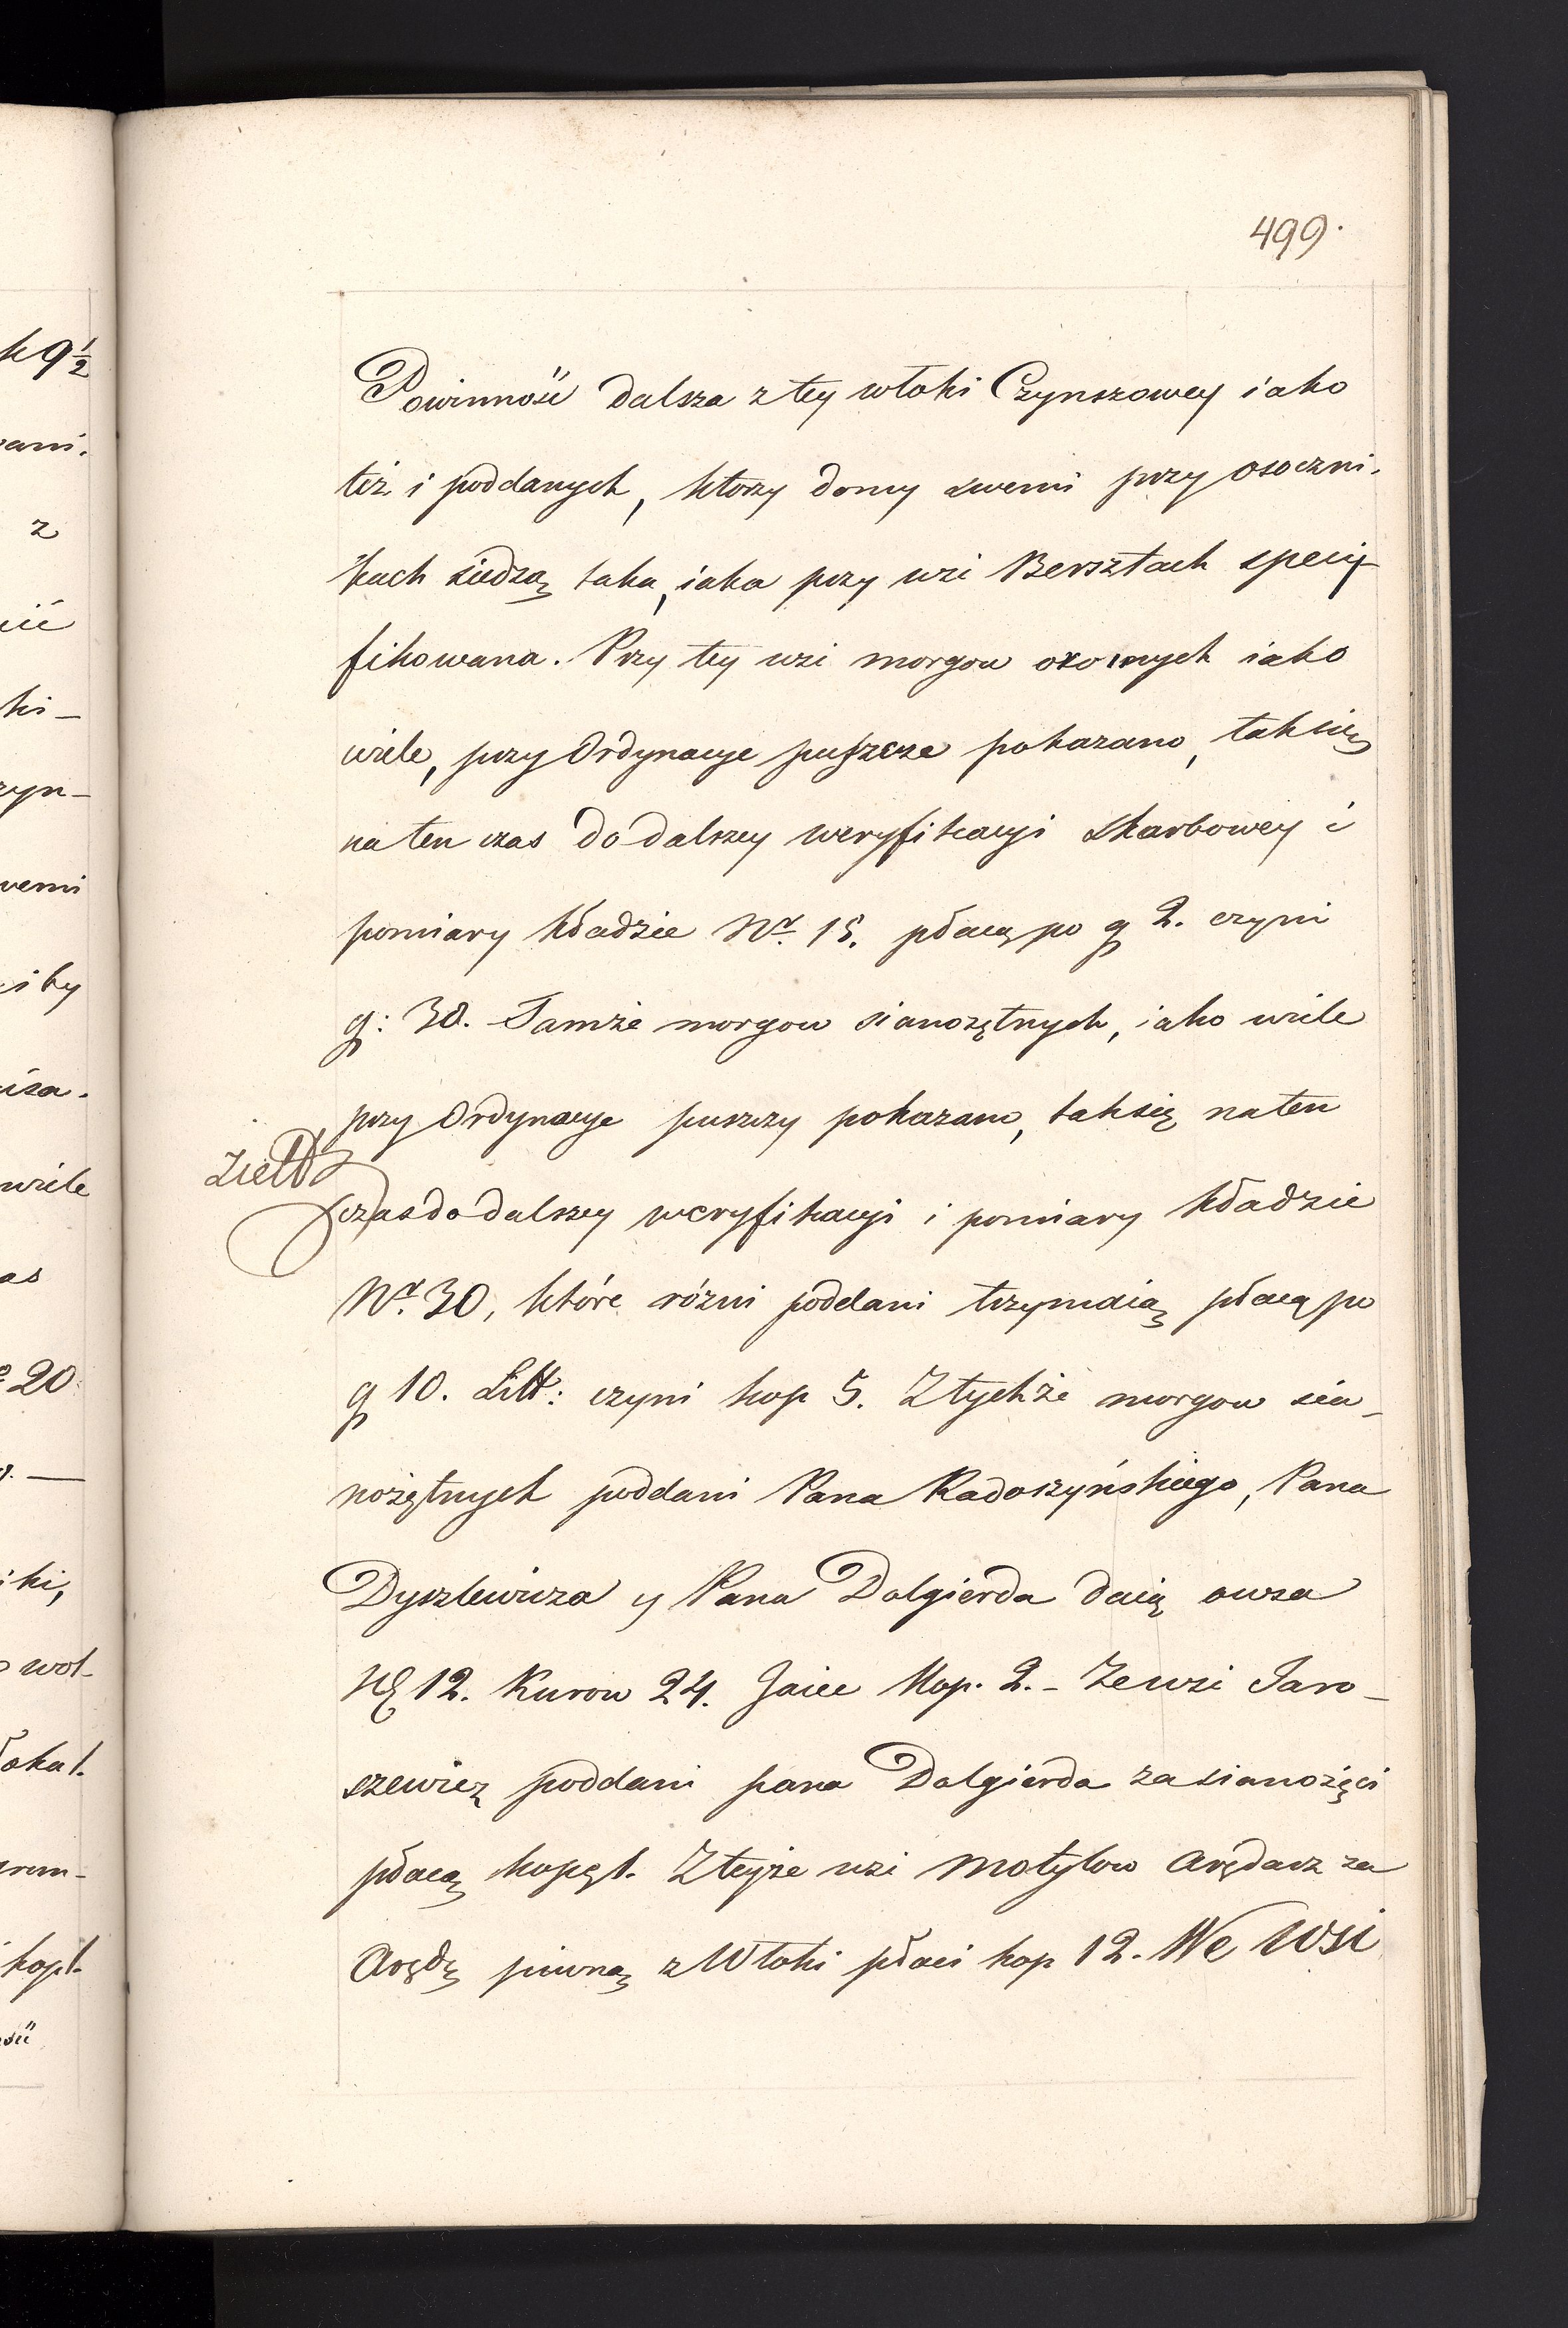 499.
Powinność dalsza z tey włoki Czynszowey iako
też i poddanych, ktorzy domy swemi przy osoczni-
kach siedzą taka, iaka przy wsi Bersztach specy-
fikowana. Przy tey wsi morgow oromych iako
wiele, przy Ordynacye puszcze pokazano, tak się
na ten czas do dalszey weryfikacyi Skarbowey i
pomiary kładzie Nr. 15. płacą po g 2. czyni
g: 30. Tamże morgow sianożętnych, iako wiele
przy Ordynacye puszczy pokazano, tak się na ten
czas do dalszey weryfikacyi i pomiary kładzie
Nr. 30, które rózni poddani trzymaią płacą po
g 10. Litt: czyni kop 5. Z tychże morgow sia-
nożętnych poddani Pana Radoszyńskiego, Pana
Dyszlewicza y Pana Dolgierda daią owsa
12. Kurow 24. Jaiec Kop. 2. - Ze wsi Jaro-
szewicz poddani pana Dolgierda za sianożęci
płacą kopę 1. Z teyże wsi Motylow Arędarz za
Arędę piwną z Włoki płaci kop 12. We Wsi
9½
z
ki-
20
wiele